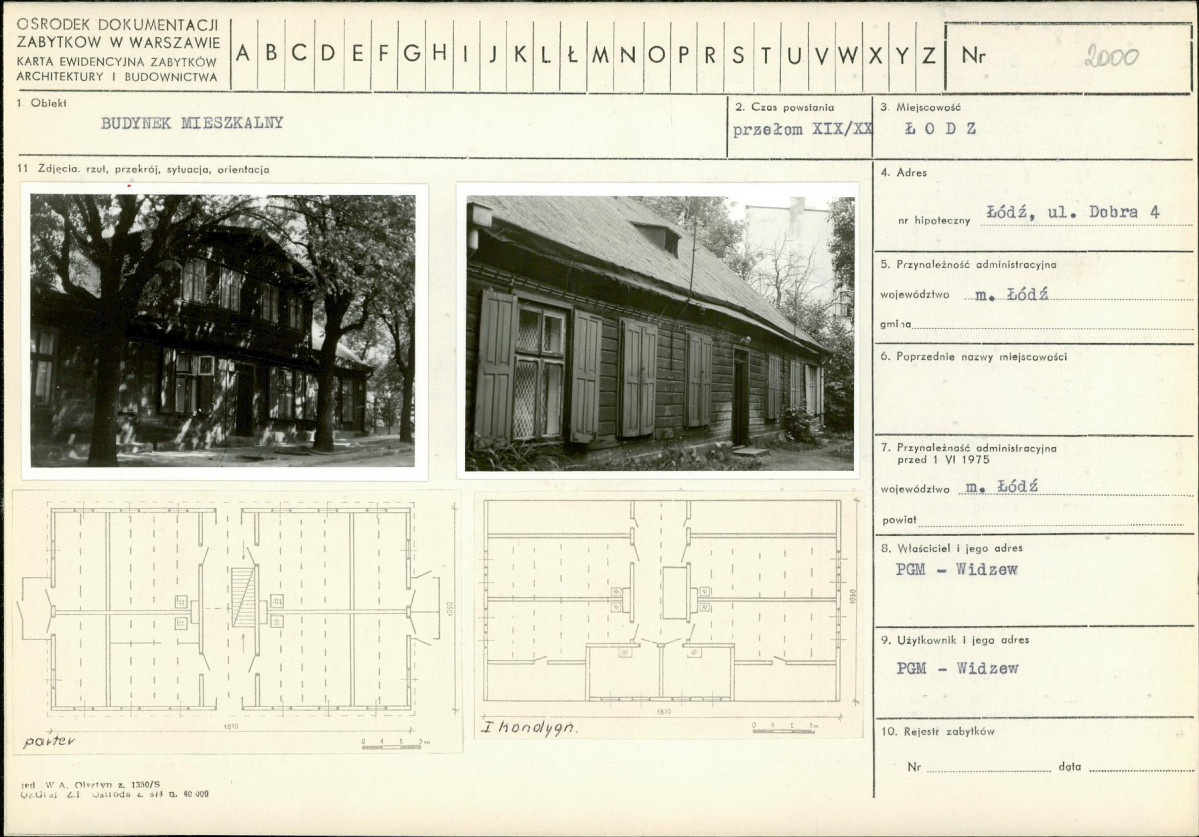 OŚRODEK DOKUMENTACJI
ZABYTKOW W WARSZAWIE
KARTA EWIDENCYJNA ZABYTKÓW
ARCHITEKTURY I BUDOWNICTWA
A B C D E F G H I J K L Ł M N O P R S T U V W X Y Z
Nr 2000
1. Obiekt
BUDYNEK MIESZKALNY
2. Czas powstania
przełom XIX/XX
3. Miejscowość
Ł O D Z
11 Zdjęcia. rzut, przekrój, sytuacja, orientacja
4. Adres
nr hipoteczny Łódź, ul. Dobra 4
5. Przynależność administracyjna
województwo m. Łódź
gmina
6. Poprzednie nazwy miejscowości
7. Przynależność administracyjna
przed 1 VI 1975
województwo m. Łódź
powiat
8. Właściciel i jego adres
PGM - Widzew
9. Użytkownik i jego adres
PGM - Widzew
10. Rejestr zabytków
Nr data
1050
1810
parter
1050
1810
I kondygn.
W A. Olsztyn z. 1350/S
n. 40 000